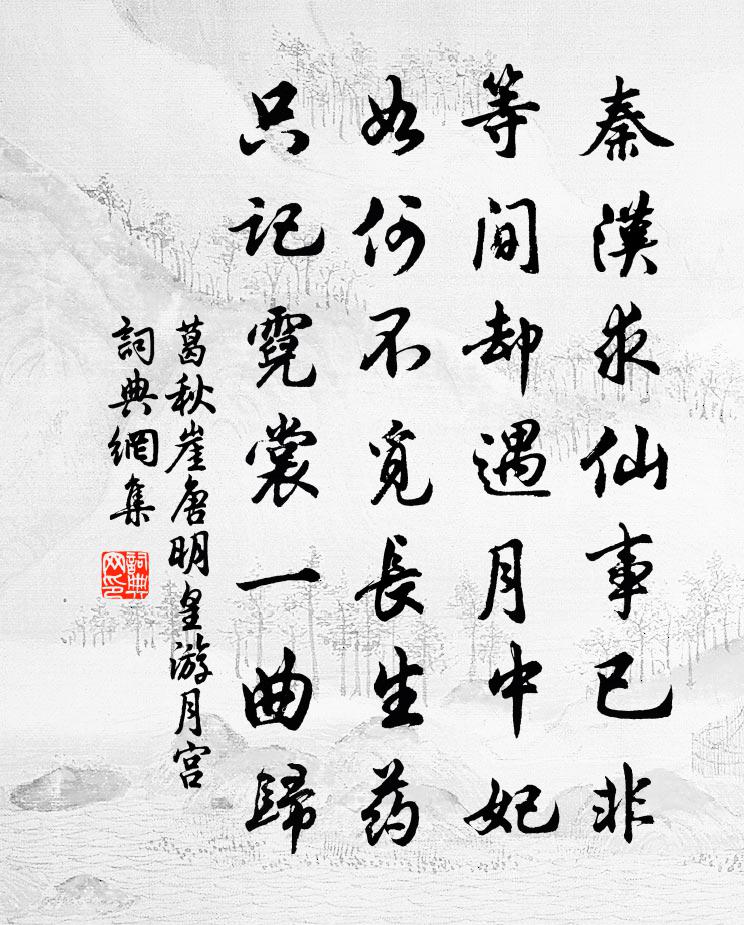 秦漢求仙事已非
等閒却遇月中妃
如何不覓長生药
只记霓裳一曲歸
葛秋崖唐明皇游月宫
詞典網集
詞典
网印